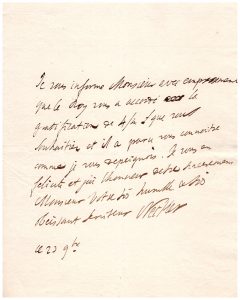 Je vous informe Monsieur avec empressement
que le Roy vous a accordé la
gratification de que vous
souhaitiés et il a paru vous connoitre
comme je vous depeignois. Je vous en
felicite et j'ai l'honneur d'etre sincerement
Monsieur Votre très humble et très
obeissant serviteur
ce 23 9bre